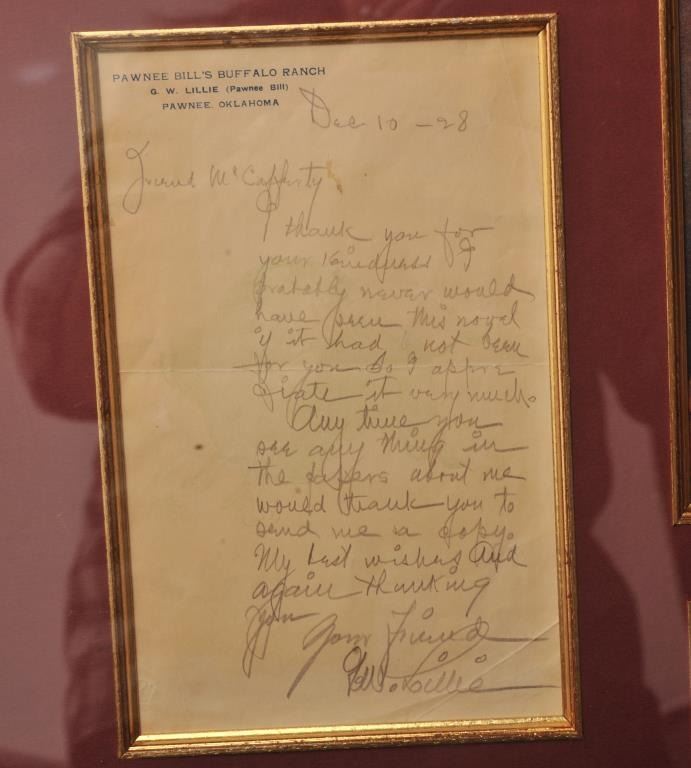 PAWNEE BILL'S BUFFALO RANCH
G. W. LILLIE (Pawnee Bill)
PAWNEE, OKLAHOMA
Dec 10 - 28
Friend McCafferty
I thank you for
your Kindness I
probably never would
have seen this novel
if it had not been
for you So I appre
ciate it very much.
Any time you
see any thing in
the papers about me
would thank you to
send me a copy.
My best wishes And
again thanking
you
Your Friend
G. W. Lillie